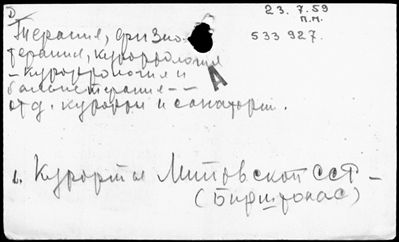 23.7.59
п.м.
533 927.
Терапия, физио-
терапия, курортология
– курортология и
бальнеотерапия – –
отд. курорты и санатории.
А
1. Курорты Литовской ССР –
(Бирштонас)